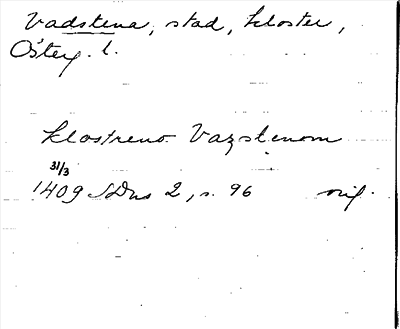 Vadstena, stad, kloster,
Österg. l.
klostreno Vazstenom
31/3
1409 SDns 2, s. 96 orig.